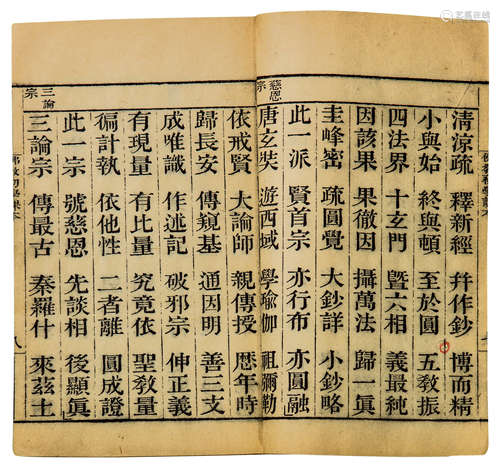 清涼疏 釋新經 幷作鈔 博而精
小與始 終與頓 至於圓 五敎振
四法界 十玄門 曁六相 義最純
因該果 果徹因 攝萬法 歸一眞
圭峰密 疏圓覺 大鈔詳 小鈔略
此一派 賢首宗 亦行布 亦圓融
慈恩宗
唐玄奘 遊西域 學瑜伽 祖彌勒
依戒賢 大論師 親傳授 歷年時
歸長安 傳窺基 通因明 善三支
成唯識 作述記 破邪宗 伸正義
有現量 有比量 究竟依 聖敎量
徧計執 依他性 二者離 圓成證
此一宗 號慈恩 先談相 後顯眞
三論宗
三論宗 傳最古 秦羅什 來茲土
八